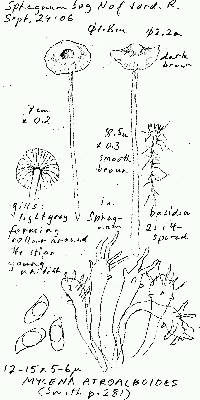 Sphagnum bog N of Jord. R.
Sept. 24-06
φ2.2a
dark
brown
7cm
x 0.2
8.5a
x 0.3
smooth
brown
gills:
light grey
forming
collar around
the stipe
young
in
Sphag-
num
basidia
2s & 4-
spored
12-15 x 5-6μ
MYCENA ATROALBOIDES
(Smith p. 281)